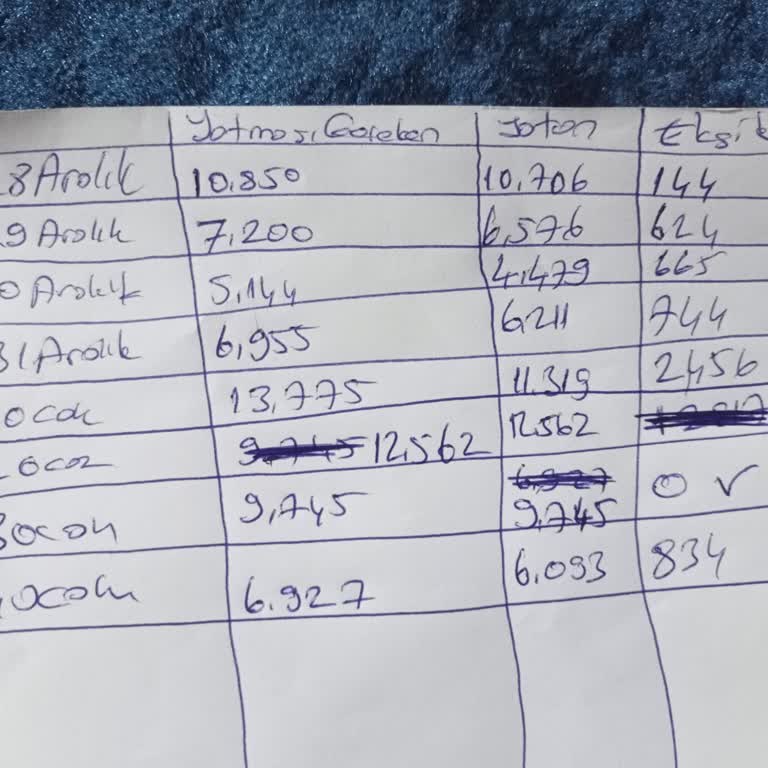 Yatması Gereken Yatan Eksik
8 Aralık 10.850 10.706 144
9 Aralık 7.200 6.576 624
0 Aralık 5.144 4.479 665
31 Aralık 6.955 6.211 744
Ocak 13.775 11.319 2.456
Ocak 12.562 12.562
3 Ocak 9.745 9.745 0 ✓
Ocak 6.927 6.093 834